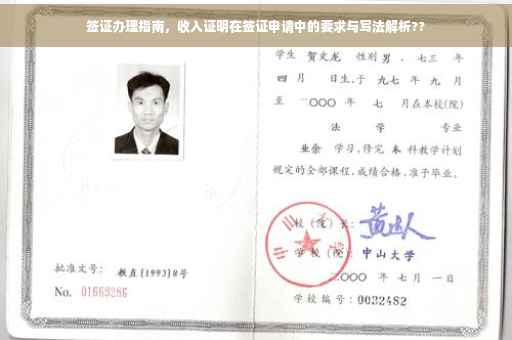 签证办理指南，收入证明在签证申请中的要求与写法解析??
学生 贺文龙 性别 男 、七三 年
四 月 日生,于 九七 年 九 月
至 二〇〇〇 年 七 月在本校(院)
法 学 专业
业余 学习,修完 本 科教学计划
规定的全部课程,成绩合格,准予毕业。
校(院)长:
学 校(院): 中山大学
二〇〇〇 年 七 月 一 日
学校编号: 0032482
批准文号: 教直[1993]8号
No. 01669286